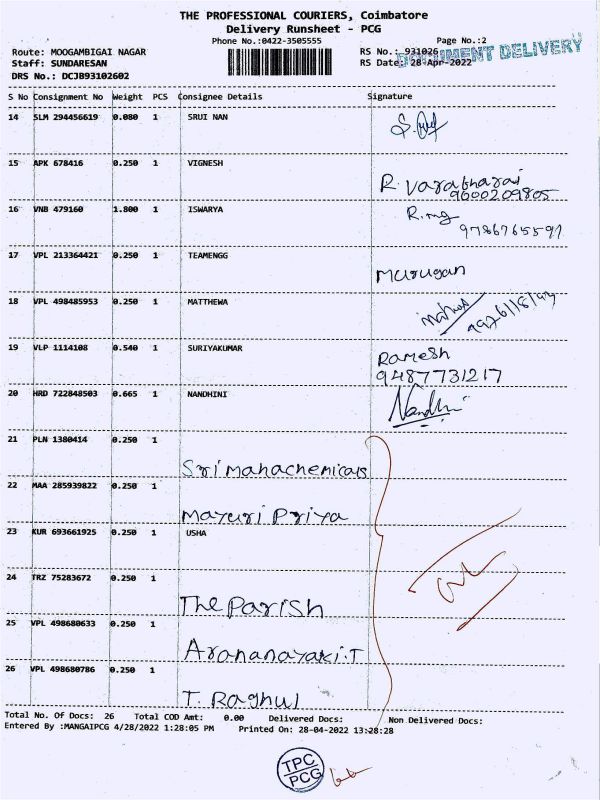 THE PROFESSIONAL COURIERS, Coimbatore
Delivery Runsheet - PCG
Phone No.:0422-3505555
Page No.:2
Route: MOOGAMBIGAI NAGAR
RS No.: 931026
DOCUMENT DELIVERY
Staff: SUNDARESAN
RS Date: 28-Apr-2022
DRS No.: DCJB93102602
S No Consignment No Weight PCS Consignee Details Signature
14 SLM 294456619 0.080 1 SRUI NAN
15 APK 678416 0.250 1 VIGNESH
R. Varatharai
9600209805
16 VNB 479160 1.800 1 ISWARYA
9786765591
17 VPL 213364421 0.250 1 TEAMENGG
Murugan
18 VPL 498485953 0.250 1 MATTHEWA
19 VLP 1114108 0.540 1 SURIYAKUMAR
Ramesh
9487731217
20 HRD 722848503 0.665 1 NANDHINI
Nandhi
21 PLN 1380414 0.250 1
Sri mahachemicals
22 MAA 285939822 0.250 1
Mayuri Priya
23 KUR 693661925 0.250 1 USHA
24 TRZ 75283672 0.250 1
The Parish
25 VPL 498680633 0.250 1
Arananayaki.T
26 VPL 498680786 0.250 1
T. Raghul
Total No. Of Docs: 26 Total COD Amt: 0.00 Delivered Docs: Non Delivered Docs:
Entered By :MANGAIPCG 4/28/2022 1:28:05 PM Printed On: 28-04-2022 13:28:28
TPC
PCG